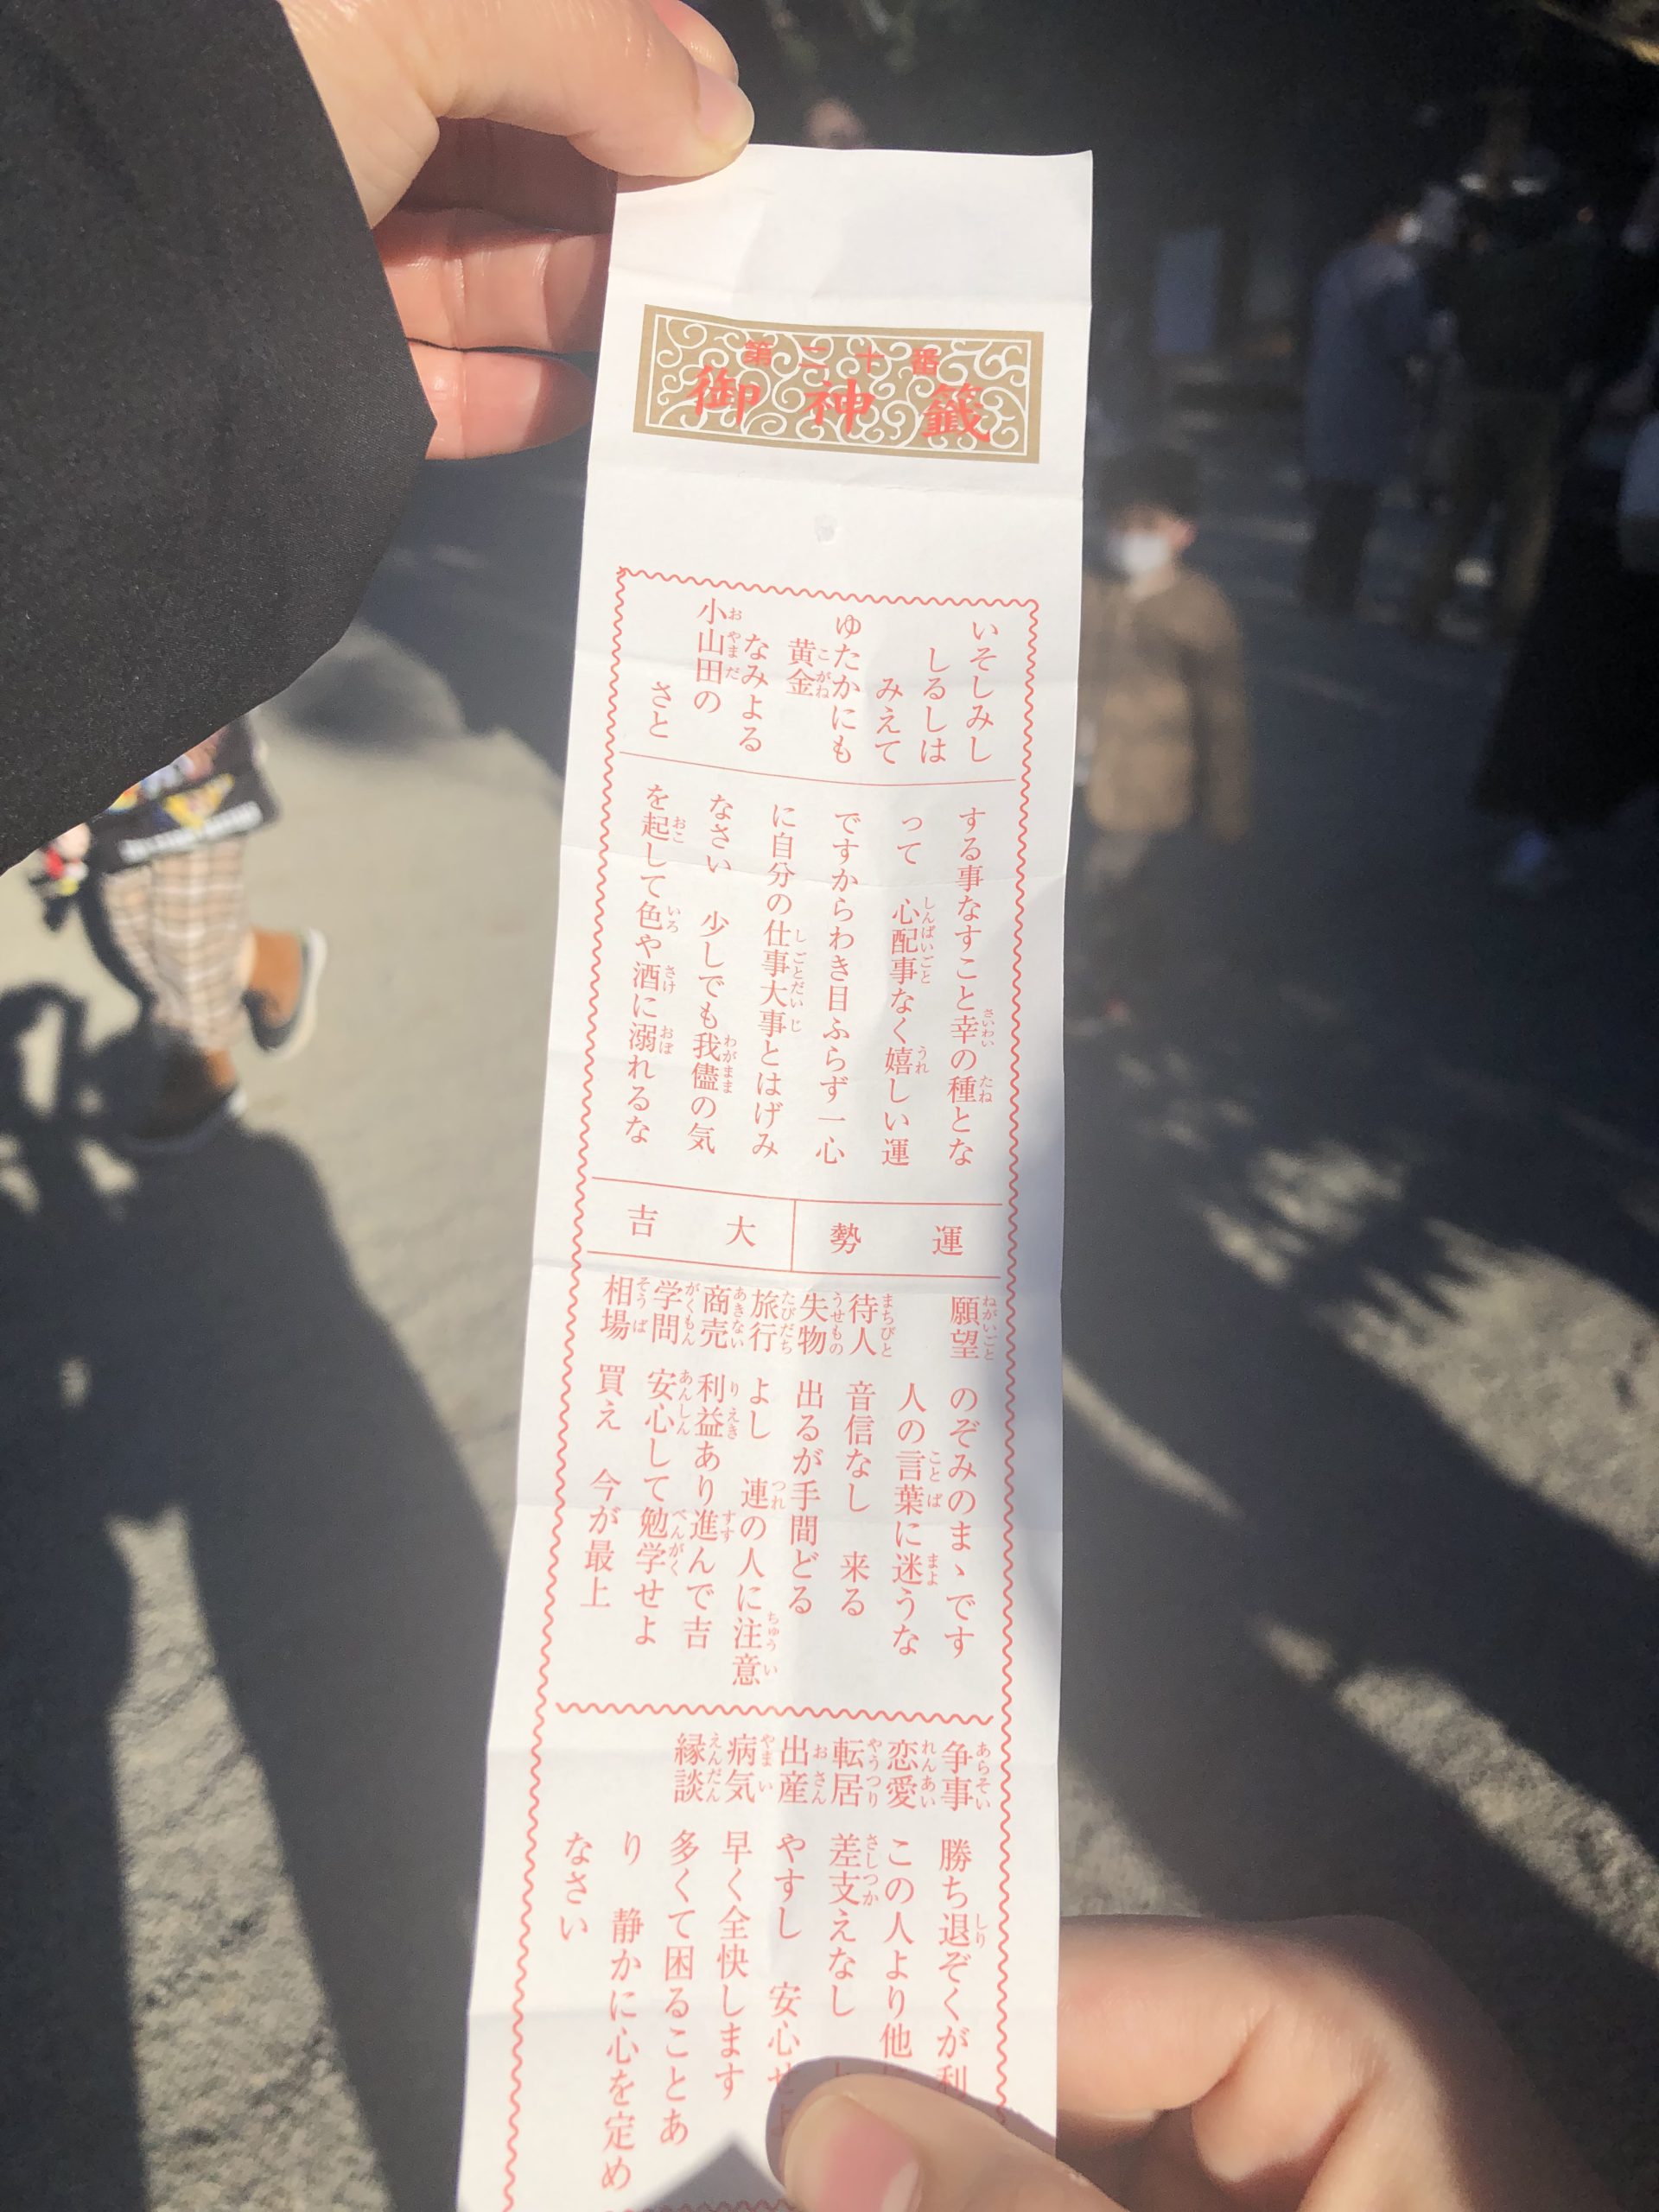 第二十番
御神籤
いそしみし
しるしは
みえて
ゆたかにも
黄金
なみよる
小山田の
さと
する事なすこと幸の種とな
って 心配事なく嬉しい運
ですからわき目ふらず一心
に自分の仕事大事とはげみ
なさい 少しでも我儘の気
を起して色や酒に溺れるな
運勢 大吉
願望 のぞみのまゝです
人の言葉に迷うな
待人 音信なし 来る
失物 出るが手間どる
旅行 よし 連の人に注意
商売 利益あり進んで吉
学問 安心して勉学せよ
相場 買え 今が最上
争事 勝ち退ぞくが利
恋愛 この人より他
転居 差支えなし
出産 やすし 安心せよ
病気 早く全快します
縁談 多くて困ることあ
り 静かに心を定め
なさい